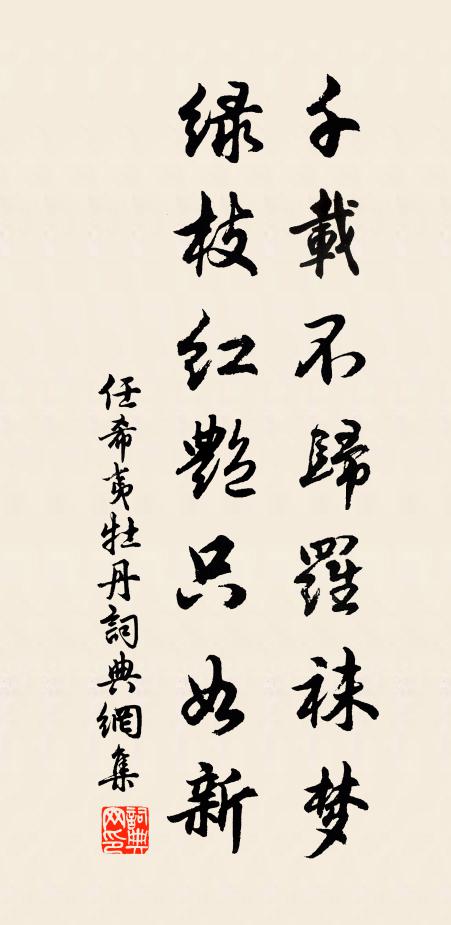 千載不歸羅袜梦
緑枝红艷只如新
任希夷牡丹詞典網集
詞典网印